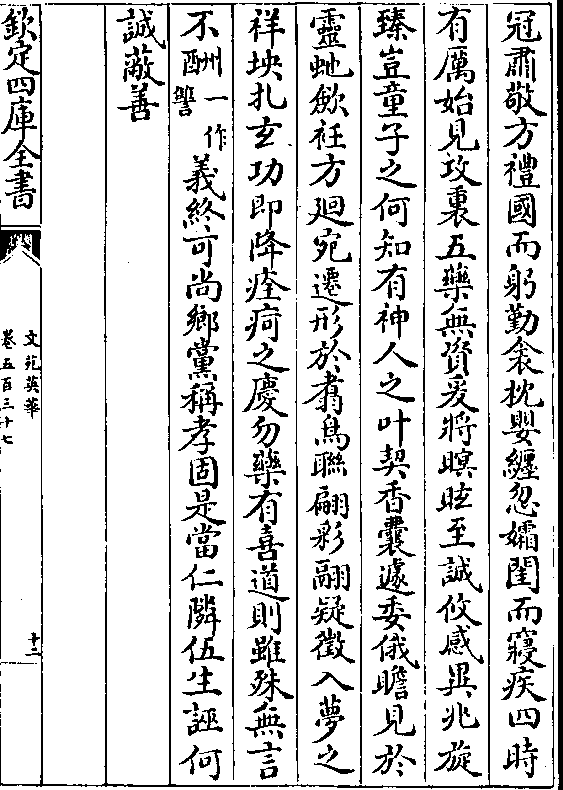 冠肅敬方禮國而躬勤衾枕嬰纏忽孀閨而寢疾四時
有厲始見攻裏五藥無資爰將瞑眩至誠攸感異兆旋
臻豈童子之何知有神人之叶契香囊遽委俄瞻見於
靈虵斂衽方廻宛遷形於翥鳥聯翩彩翮疑徵入夢之
祥坱扎玄功即降痊痾之慶勿藥有喜道則雖殊無言
不酬一作讐義終可尚鄉黨稱孝固是當仁隣伍生誣何
誠蔽善
欽定四庫全書
文苑英華
卷五百三十七
十二